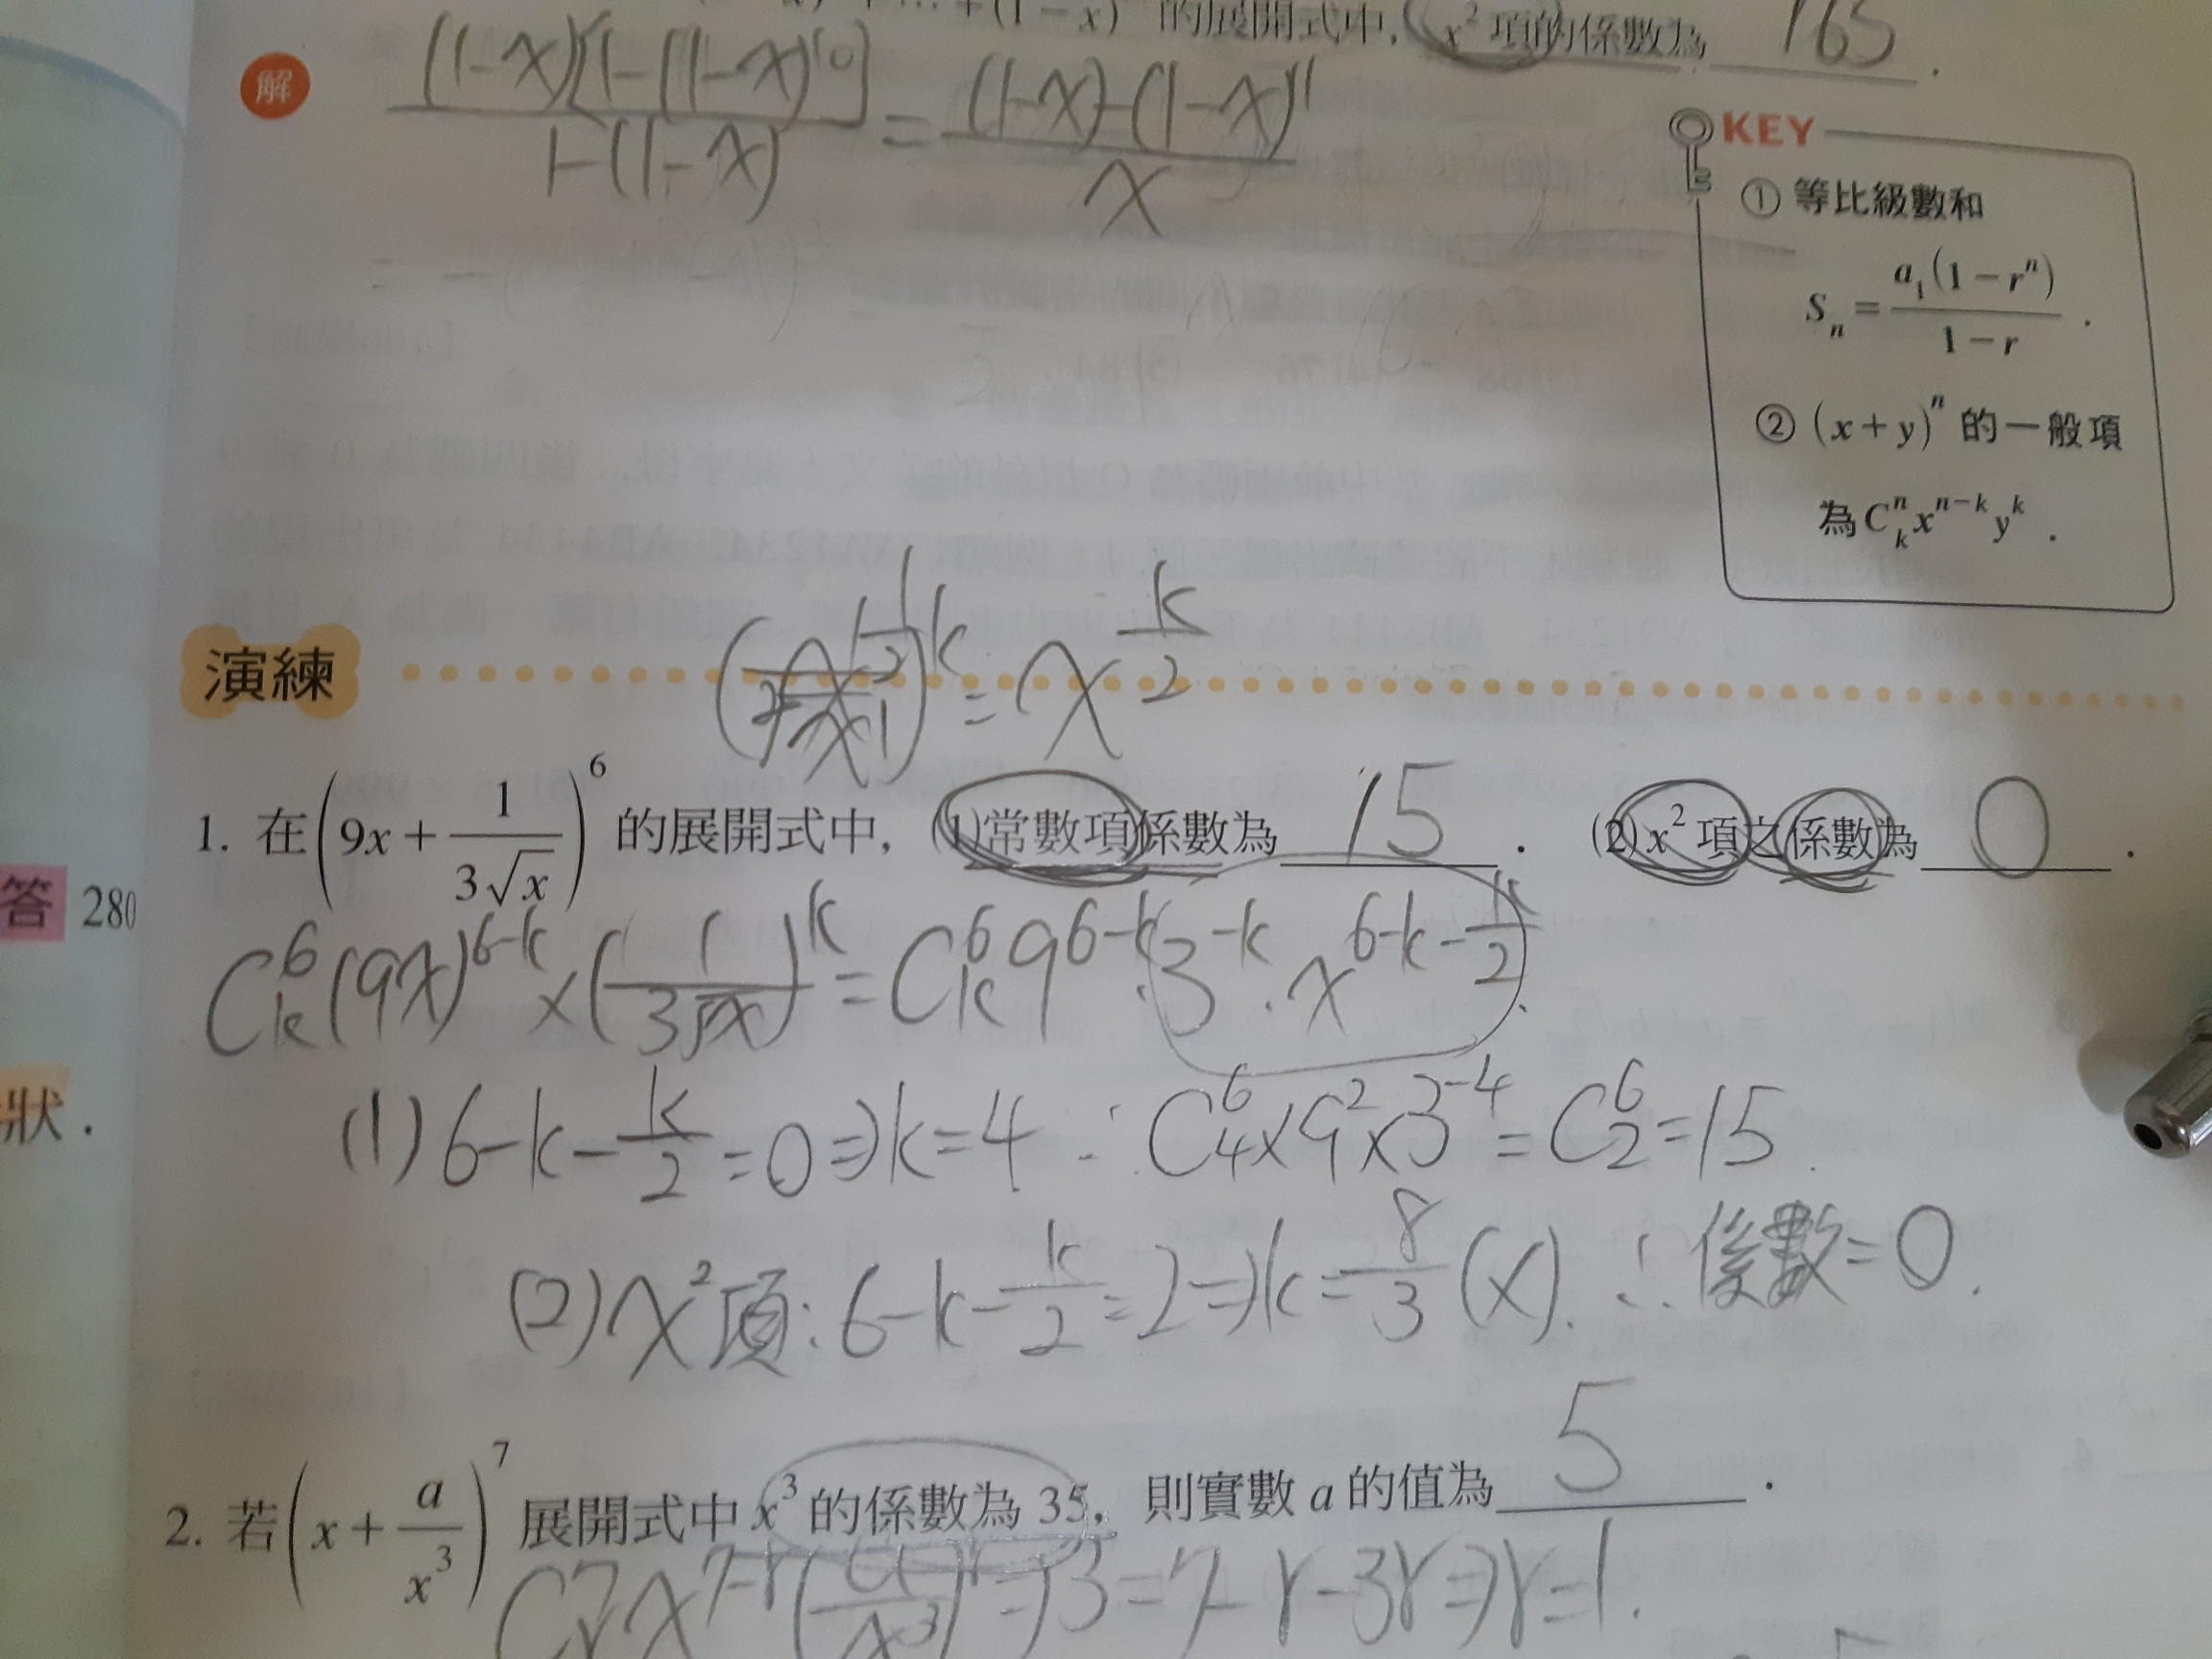 +…+(1－x) 的展開式中, x² 項的係數為 165 .
解 (1-x)[1-(1-x)^10] / 1-(1-x) = (1-x)-(1-x)^11 / x
KEY
① 等比級數和
Sₙ = a₁(1－rⁿ) / 1－r .
② (x＋y)ⁿ 的一般項
為 C^n_k x^{n－k} y^k .
演練
= x^{-k/2}
1. 在 (9x＋1/(3√x))^6 的展開式中, (1)常數項係數為 15 . (2) x² 項之係數為 0 .
答 280
C^6_k (9x)^{6-k} × (1/(3√x))^k = C^6_k 9^{6-k} · 3^{-k} · x^{6-k-k/2} .
(1) 6-k-k/2 = 0 ⇒ k=4 ∴ C^6_4 × 9^2 × 3^{-4} = C^6_2 = 15 .
狀 .
(2) x² 項 : 6-k-k/2 = 2 ⇒ k = 8/3 (x). ∴ 係數 = 0 .
2. 若 (x＋a/x³)^7 展開式中 x³ 的係數為 35, 則實數 a 的值為 5 .
C^7_r x^{7-r} (a/x³)^r ⇒ 3 = 7-r-3r ⇒ r=1 .